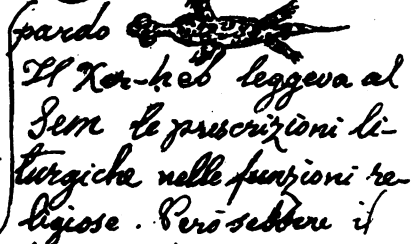 pardo
Il Xer-heb leggeva al
Sem le prescrizioni li-
turgiche nelle funzioni re-
ligiose. Però sebbene il